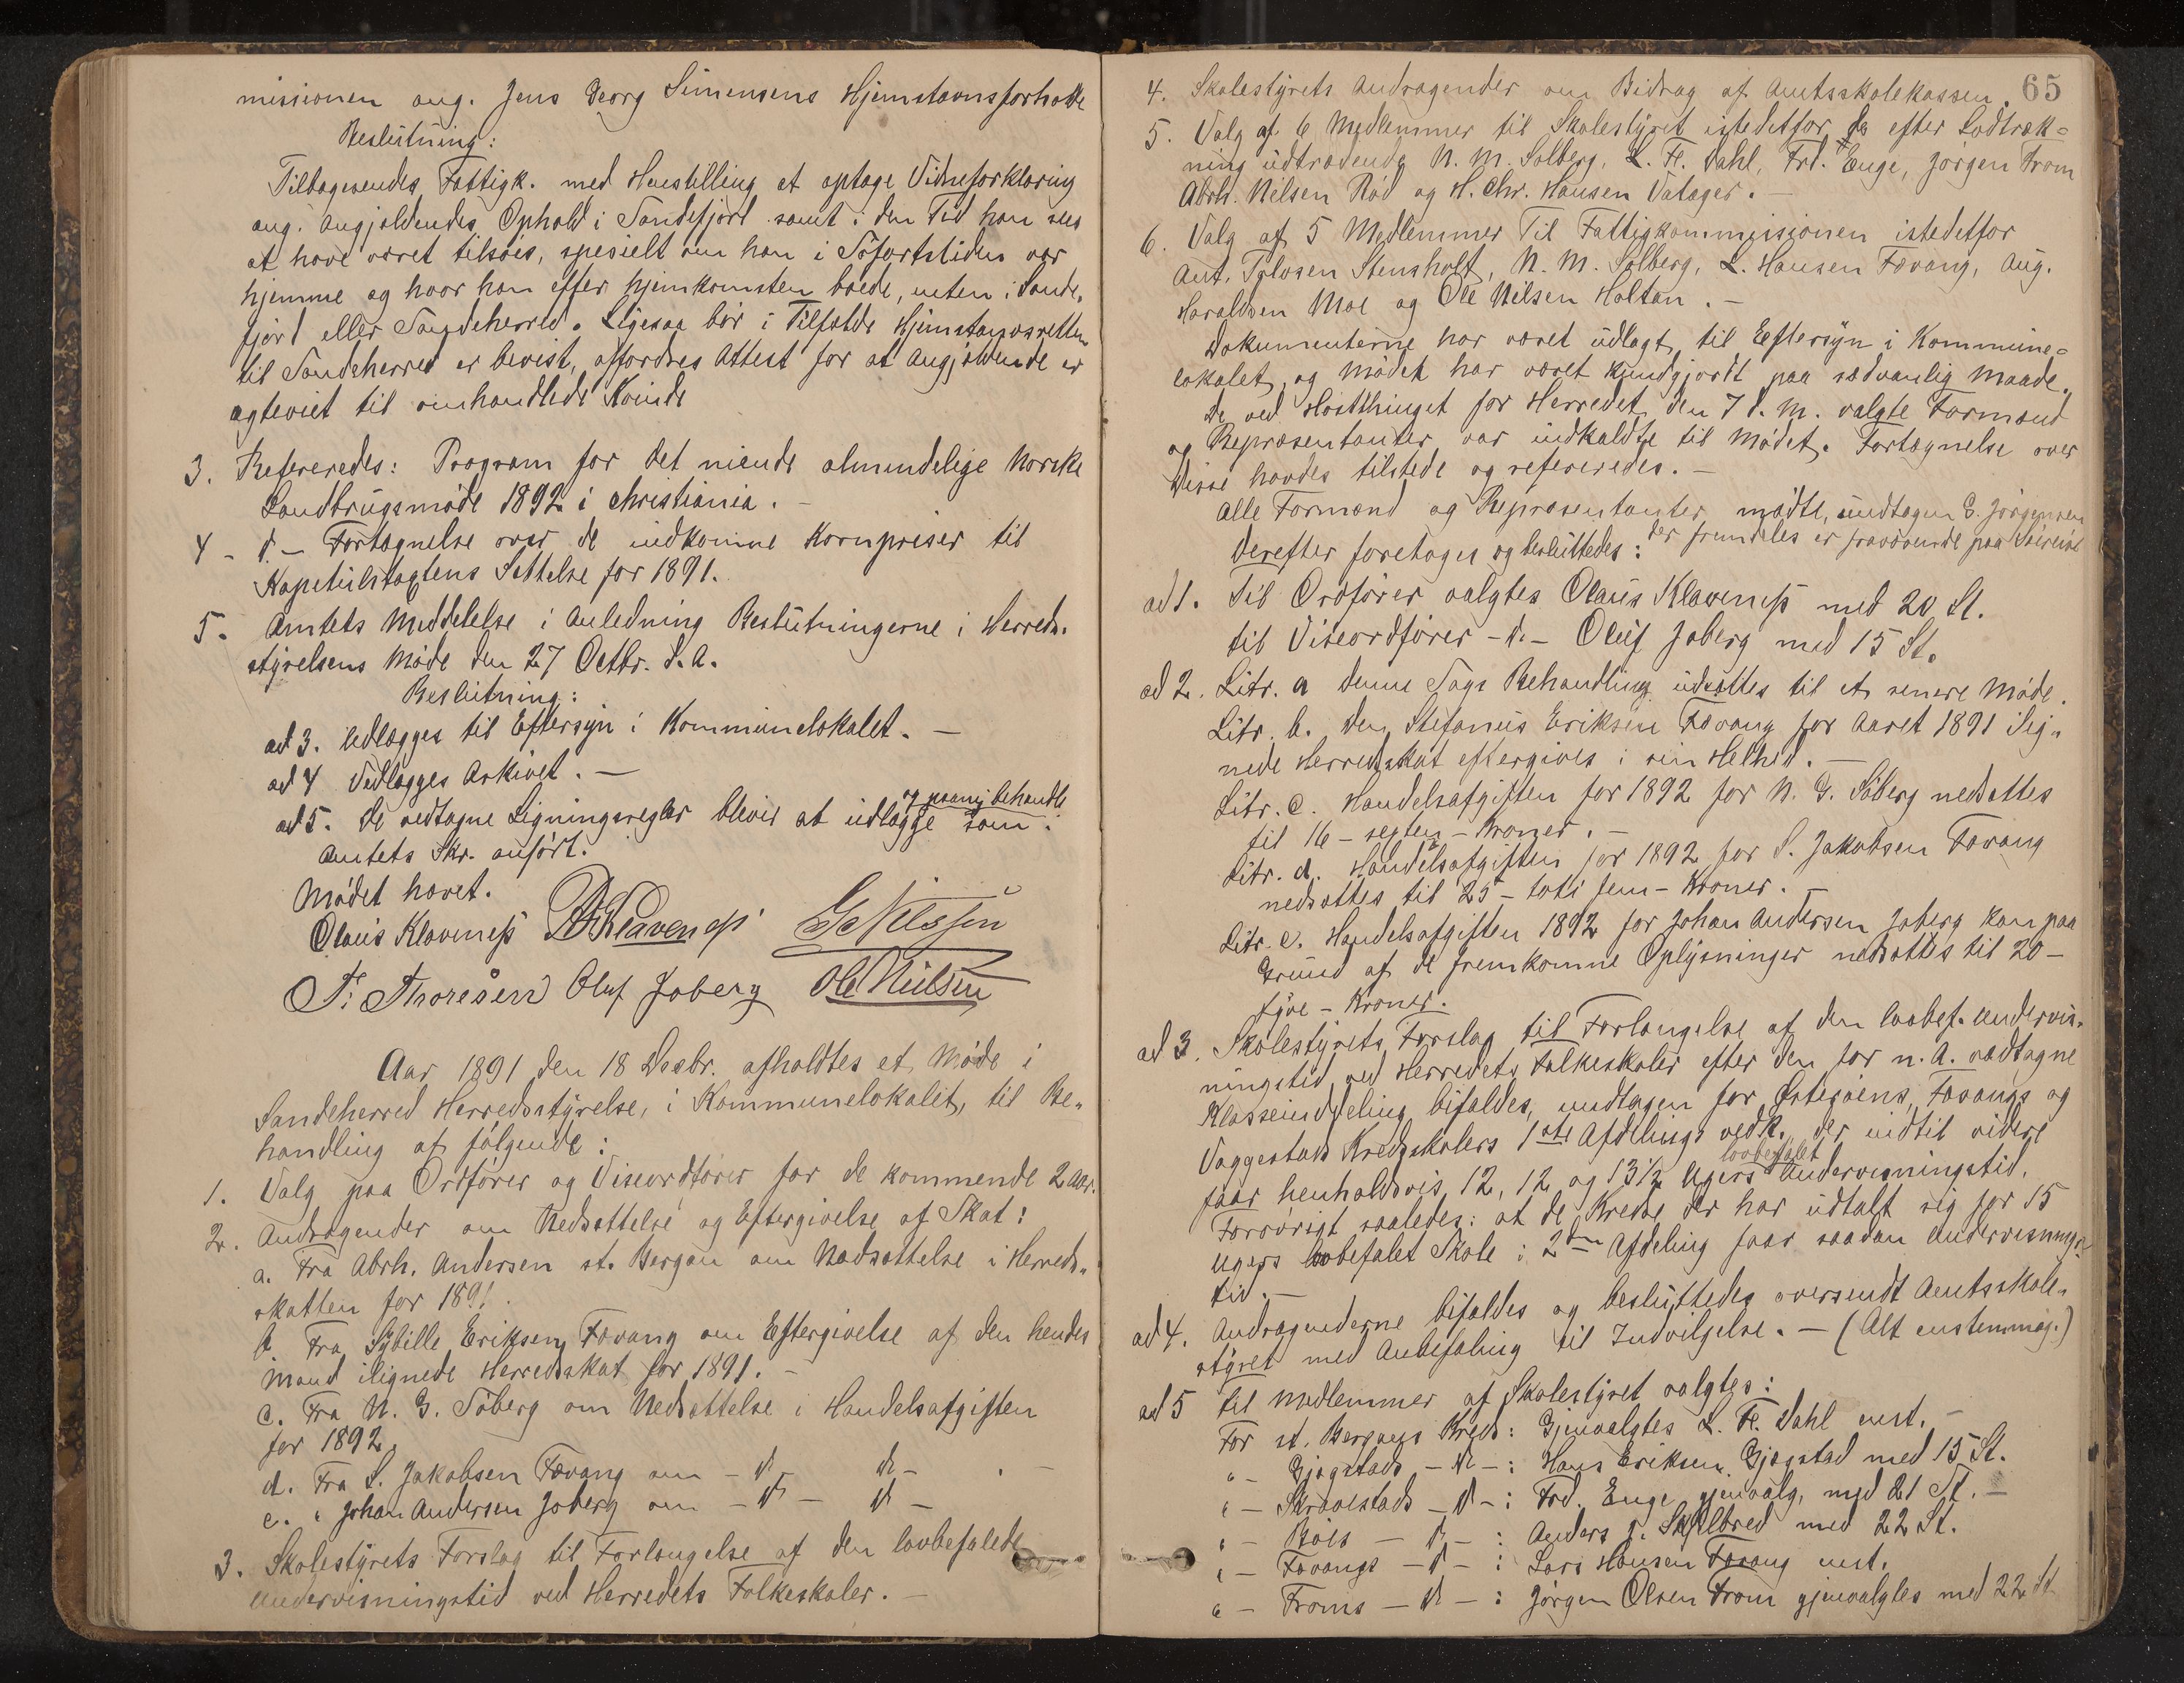 missionen ang. Jens Georg Simensens Hjemstavnsforholde
Beslutning:
Tilbagesendes Fattigk. med Henstilling at optage Vidneforklaring
ang. angjældendes Ophold i Sandefjord samt i den Tid han sees
at have været tilsøes, spesielt om han i Søfartstiden var
hjemme og hvor han efter hjemkomsten boede, enten i Sande-
fjord eller Sandeherred. Ligesaa bør i Tilfælde Hjemstavnsretten
til Sandeherred er bevist, affordres Attest for at angjældende er
ægteviet til omhandlede Kvinde
3. Refereredes: Program for det niende almindelige Norske
Landbrugsmøde 1892 i Christiania. -
4 - d - Fortegnelse over de indkomne Kornpriser til
Kapitulstagtens Sættelse for 1891.
5. Amtets Meddelelse i Anledning Beslutningerne i Herreds-
styrelsens Møde den 27 Octbr. d. A.
Beslutning:
ad 3. Udlægges til Eftersyn i Kommunelokalet. -
ad 4 Vedlægges Arkivet. -
og paany behandle
ad 5. De vedtagne Ligningsregler bliver at udlægge som i
Amtets Skr. anført.
Mødet hævet.
Olaus Klavenæss Klavenæss G Nilssen
T. Thoresen Oluf Jøberg Ole Nielsen
Aar 1891 den 18 Desbr. afholdtes et Møde i
Sandeherred Herredsstyrelse, i Kommunelokalet, til Be-
handling af følgende:
1. Valg paa Ordfører og Viseordfører for de kommende 2 Aar.
2. Andragender om Nedsættelse og Eftergivelse af Skat:
a. Fra Abrh. Andersen st. Bergan om Nedsættelse i Herreds-
skatten for 1891.
b. Fra Sybille Eriksen Fævang om Eftergivelse af den hendes
Mand ilignede Herredsskat for 1891. -
c. Fra N. G. Søberg om Nedsættelse i Handelsafgiften
for 1892.
d. Fra S. Jakobsen Fævang om - d - d - . -
e. " Johan Andersen Jøberg om - d - d -
3. Skolestyrets Forslag til Forlængelse af den lovbefalede
Undervisningstid ved Herredets Folkeskoler. -
65
4. Skolestyrets Andragender om Bidrag af Amtsskolekassen.
5. Valg af 6 Medlemmer til Skolestyret istedetfor de efter Lodtræk-
ning udtrædende N. M. Solberg, L. Fr. Dahl, Frd. Enge, Jørgen From
Abrh. Nilsen Rød og H. Chr. Hansen Vatager. -
6. Valg af 5 Medlemmer Til Fattigkommisjonen istedetfor
Ant. Tolvsen Stensholt, N. M. Solberg, L. Hansen Fævang, Aug.
Haraldsen Moe og Ole Nilsen Haltan. -
Dokumenterne har været udlagt til Eeftersyn i Kommune-
lokalet, og Mødet har været kundgjordt paa sædvanlig Maade.
De ved Høstthinget for Herredet den 7 d. M. valgte Formænd
og Repræsentanter var indkaldte til Mødet. Fortegnelse over
Disse havdes tilstede og refereredes. -
Alle Formænd og Repræsentanter mødte, undtagen G. Jørgensen
der fremdeles er fraværende paa
Derefter foretoges og besluttedes:
ad 1. Til Ordfører valgtes Olaus Klavenæss med 20 St.
til Viseordfører - d. - Oluf Jøberg med 15 St.
ad 2. Litr. a Denne Sags Behandling udsættes til et senere Møde.
Litr. b. Den Stefanus Eriksen Fævang for Aaret 1891 ilig-
nede Herredsskat eftergives i sin Helhed. -
Litr. c. Handelsafgiften for 1892 for N. G. Søberg nedsættes
til 16 - sexten - Kroner. -
Litr. d. Handelsafgiften for 1892 for S. Jakobsen Fævang
nedsættes til 25 - toti fem - Kroner. -
Litr. e. Handelsafgiften 1892 for Johan Andersen Jøberg kan paa
Grund af de fremkomne Oplysninger nedsættes til 20 -
tyve - Kroner.
ad 3. Skolestyrets Forslag til Forlængelse af den lovbef. Undervis-
ningstid ved Herredets Folkeskoler efter den for n. A. vedtagne
Klasseinddeling bifaldes, undtagen for Østerøens, Fævangs og
Vaggestads Kredsskolers 1ste Afdelings vedk. der indtil videre
lovbefalet
faar henholdsvis 12, 12 og 13 1/2 Ugers Undervisningstid.
Forøvrigt saaledes: at de Kredse der har udtalt sig for 15
Ugers lovbefalet Skole i 2den Afdeling faar saadan Undervisnings-
tid. -
ad 4. Andragenderne bifaldes og besluttedes oversendt Amtsskole-
styret med Anbefaling til Indvilgelse. - (Alt enstemmig.)
ad 5 Til Medlemmer af Skolestyret valgtes:
For st. Bergans Kreds: Gjenvalgtes L. Fr. Dahl enst. -
" - Gjøgstads - d - : Hans Eriksen Gjøgstad med 15 St.
" - Skravestads - d - : Frd. Enge gjenvalg. med 21 St. -
" - Boes - d - : Anders J. Skjelbred med 22 St.
" - Fævangs - d - : Lars Hansen Fævang enst.
" - Froms - d - : Jørgen Olsen From gjenvalgtes med 22 St